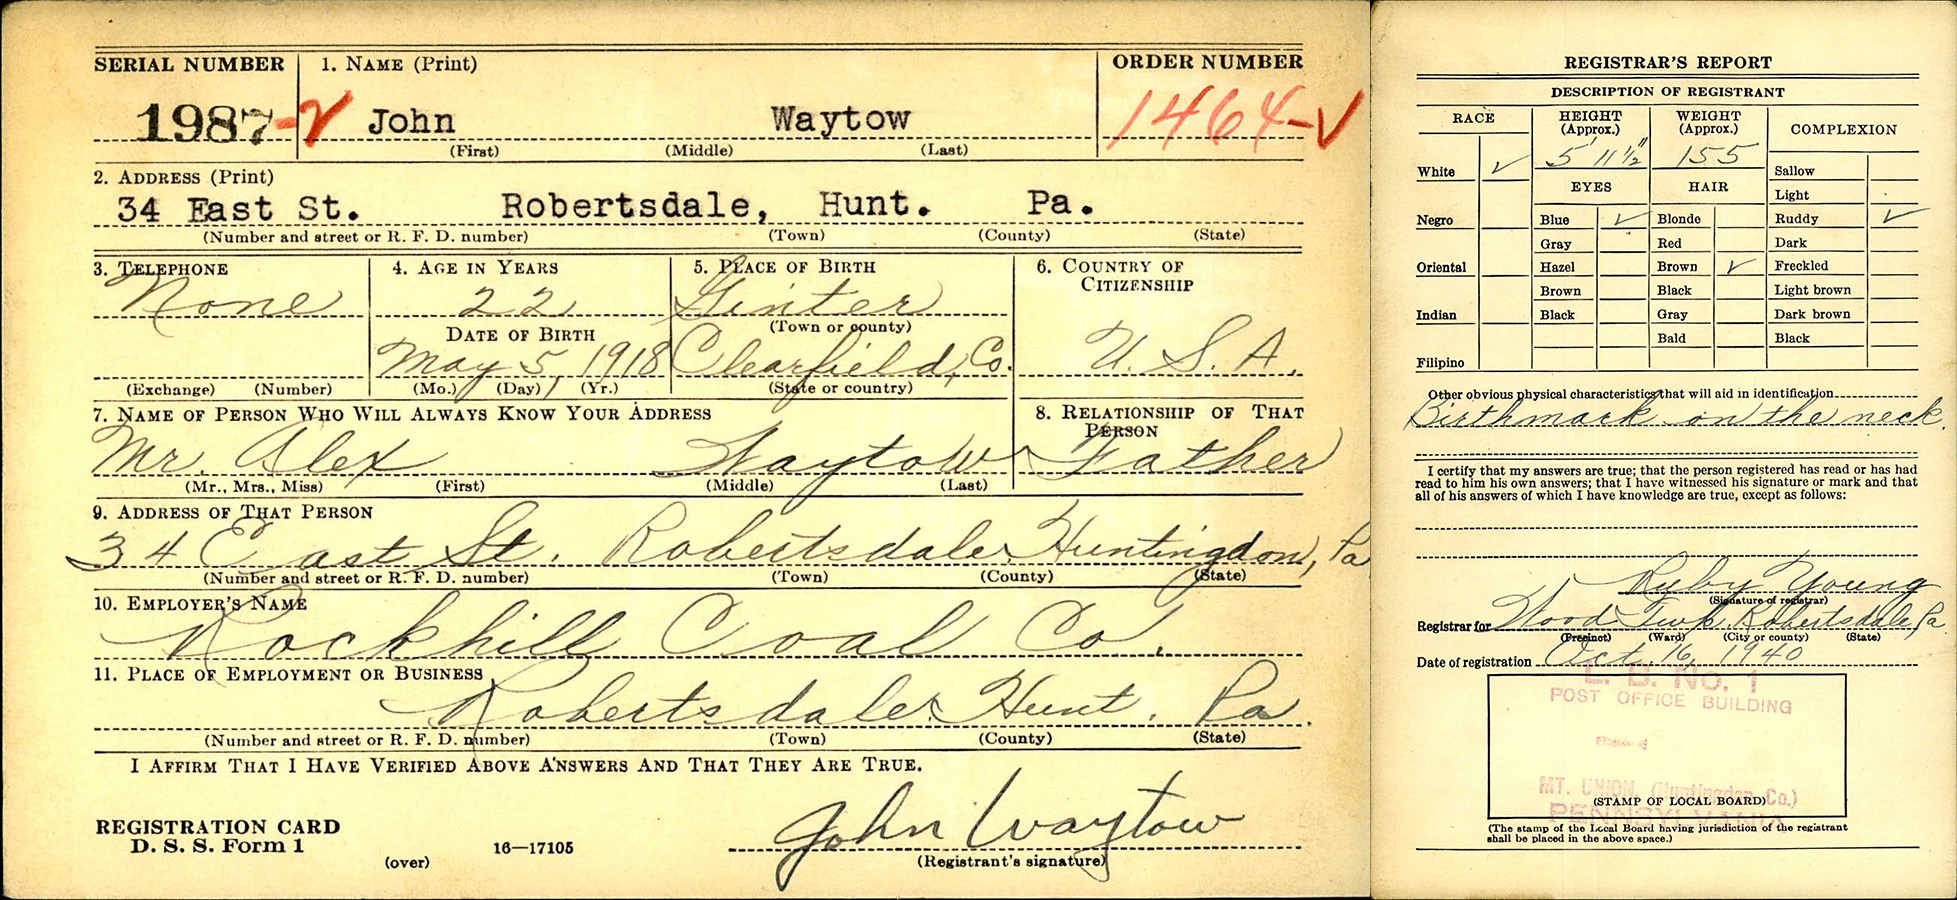 SERIAL NUMBER 1. NAME (Print) ORDER NUMBER
1987-V John Waytow 1464-V
(First) (Middle) (Last)
2. ADDRESS (Print)
34 East St. Robertsdale, Hunt. Pa.
(Number and street or R. F. D. number) (Town) (County) (State)
3. TELEPHONE 4. AGE IN YEARS 5. PLACE OF BIRTH 6. COUNTRY OF CITIZENSHIP
None 22 Ginter
DATE OF BIRTH (Town or county)
May 5, 1918 Clearfield, Co. U. S. A.
(Exchange) (Number) (Mo.) (Day) (Yr.) (State or country)
7. NAME OF PERSON WHO WILL ALWAYS KNOW YOUR ADDRESS 8. RELATIONSHIP OF THAT PERSON
Mr. Alex Waytow Father
(Mr., Mrs., Miss) (First) (Middle) (Last)
9. ADDRESS OF THAT PERSON
34 East St. Robertsdale Huntingdon, Pa
(Number and street or R. F. D. number) (Town) (County) (State)
10. EMPLOYER'S NAME
Rockhill Coal Co.
11. PLACE OF EMPLOYMENT OR BUSINESS
Robertsdale Hunt. Pa.
(Number and street or R. F. D. number) (Town) (County) (State)
I AFFIRM THAT I HAVE VERIFIED ABOVE ANSWERS AND THAT THEY ARE TRUE.
REGISTRATION CARD
D. S. S. Form 1
(over)
16—17105
John Waytow
(Registrant's signature)
REGISTRAR'S REPORT
DESCRIPTION OF REGISTRANT
RACE HEIGHT (Approx.) WEIGHT (Approx.) COMPLEXION
5' 11½" 155
White ✓ Sallow
EYES HAIR Light
Negro Blue ✓ Blonde Ruddy ✓
Gray Red Dark
Oriental Hazel Brown ✓ Freckled
Brown Black Light brown
Indian Black Gray Dark brown
Bald Black
Filipino
Other obvious physical characteristics that will aid in identification
Birthmark on the neck.
I certify that my answers are true; that the person registered has read or has had
read to him his own answers; that I have witnessed his signature or mark and that
all of his answers of which I have knowledge are true, except as follows:
Ruby Young
(Signature of registrar)
Registrar for Wood Twp. Robertsdale, Pa
(Precinct) (Ward) (City or county) (State)
Date of registration Oct. 16, 1940
L. B. No. 1
POST OFFICE BUILDING
MT. UNION, (Huntingdon Co.)
PENNSYLVANIA
(STAMP OF LOCAL BOARD)
(The stamp of the Local Board having jurisdiction of the registrant
shall be placed in the above space.)